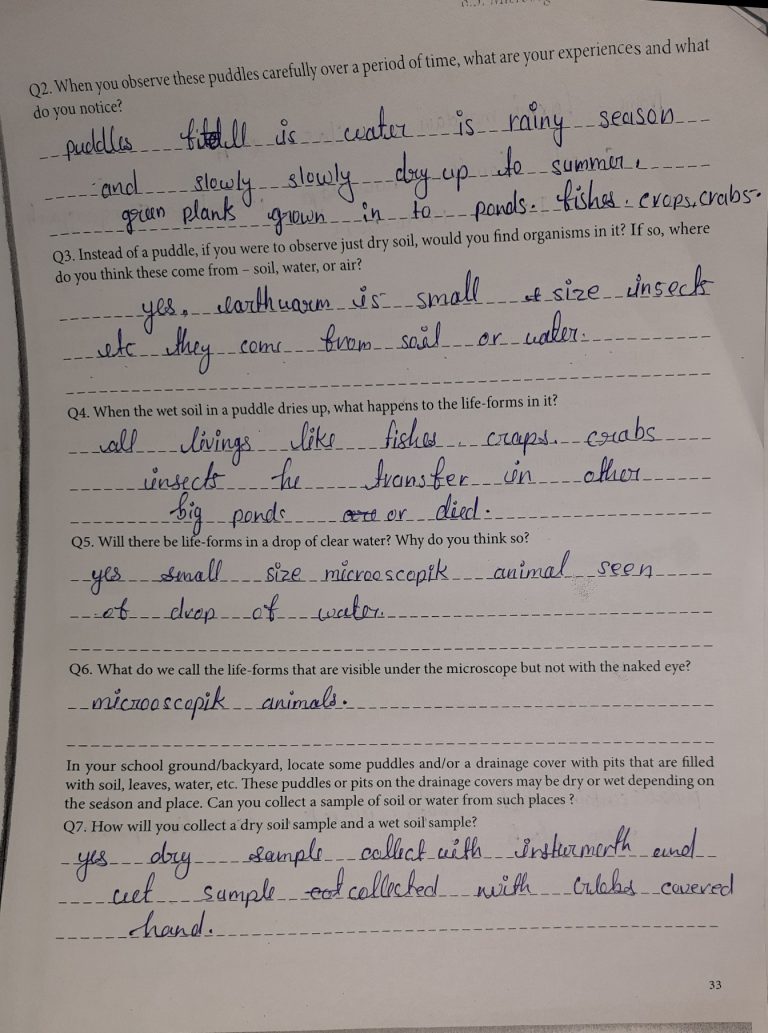 Q2. When you observe these puddles carefully over a period of time, what are your experiences and what
do you notice?
puddles is water is rainy season
and slowly slowly dry up to summer.
green plants grown in to ponds. fishes. craps. crabs.
Q3. Instead of a puddle, if you were to observe just dry soil, would you find organisms in it? If so, where
do you think these come from – soil, water, or air?
yes, earthwarm is small size insects
etc they come from soil or water.
Q4. When the wet soil in a puddle dries up, what happens to the life-forms in it?
all livings like fishes. craps. crabs
insects he transfer in other
big ponds or died.
Q5. Will there be life-forms in a drop of clear water? Why do you think so?
yes small size microoscopik animal seen
of drop of water.
Q6. What do we call the life-forms that are visible under the microscope but not with the naked eye?
microoscopik animals.
In your school ground/backyard, locate some puddles and/or a drainage cover with pits that are filled
with soil, leaves, water, etc. These puddles or pits on the drainage covers may be dry or wet depending on
the season and place. Can you collect a sample of soil or water from such places ?
Q7. How will you collect a dry soil sample and a wet soil sample?
yes dry sample collect with and
wet sample collected with covered
hand.
33